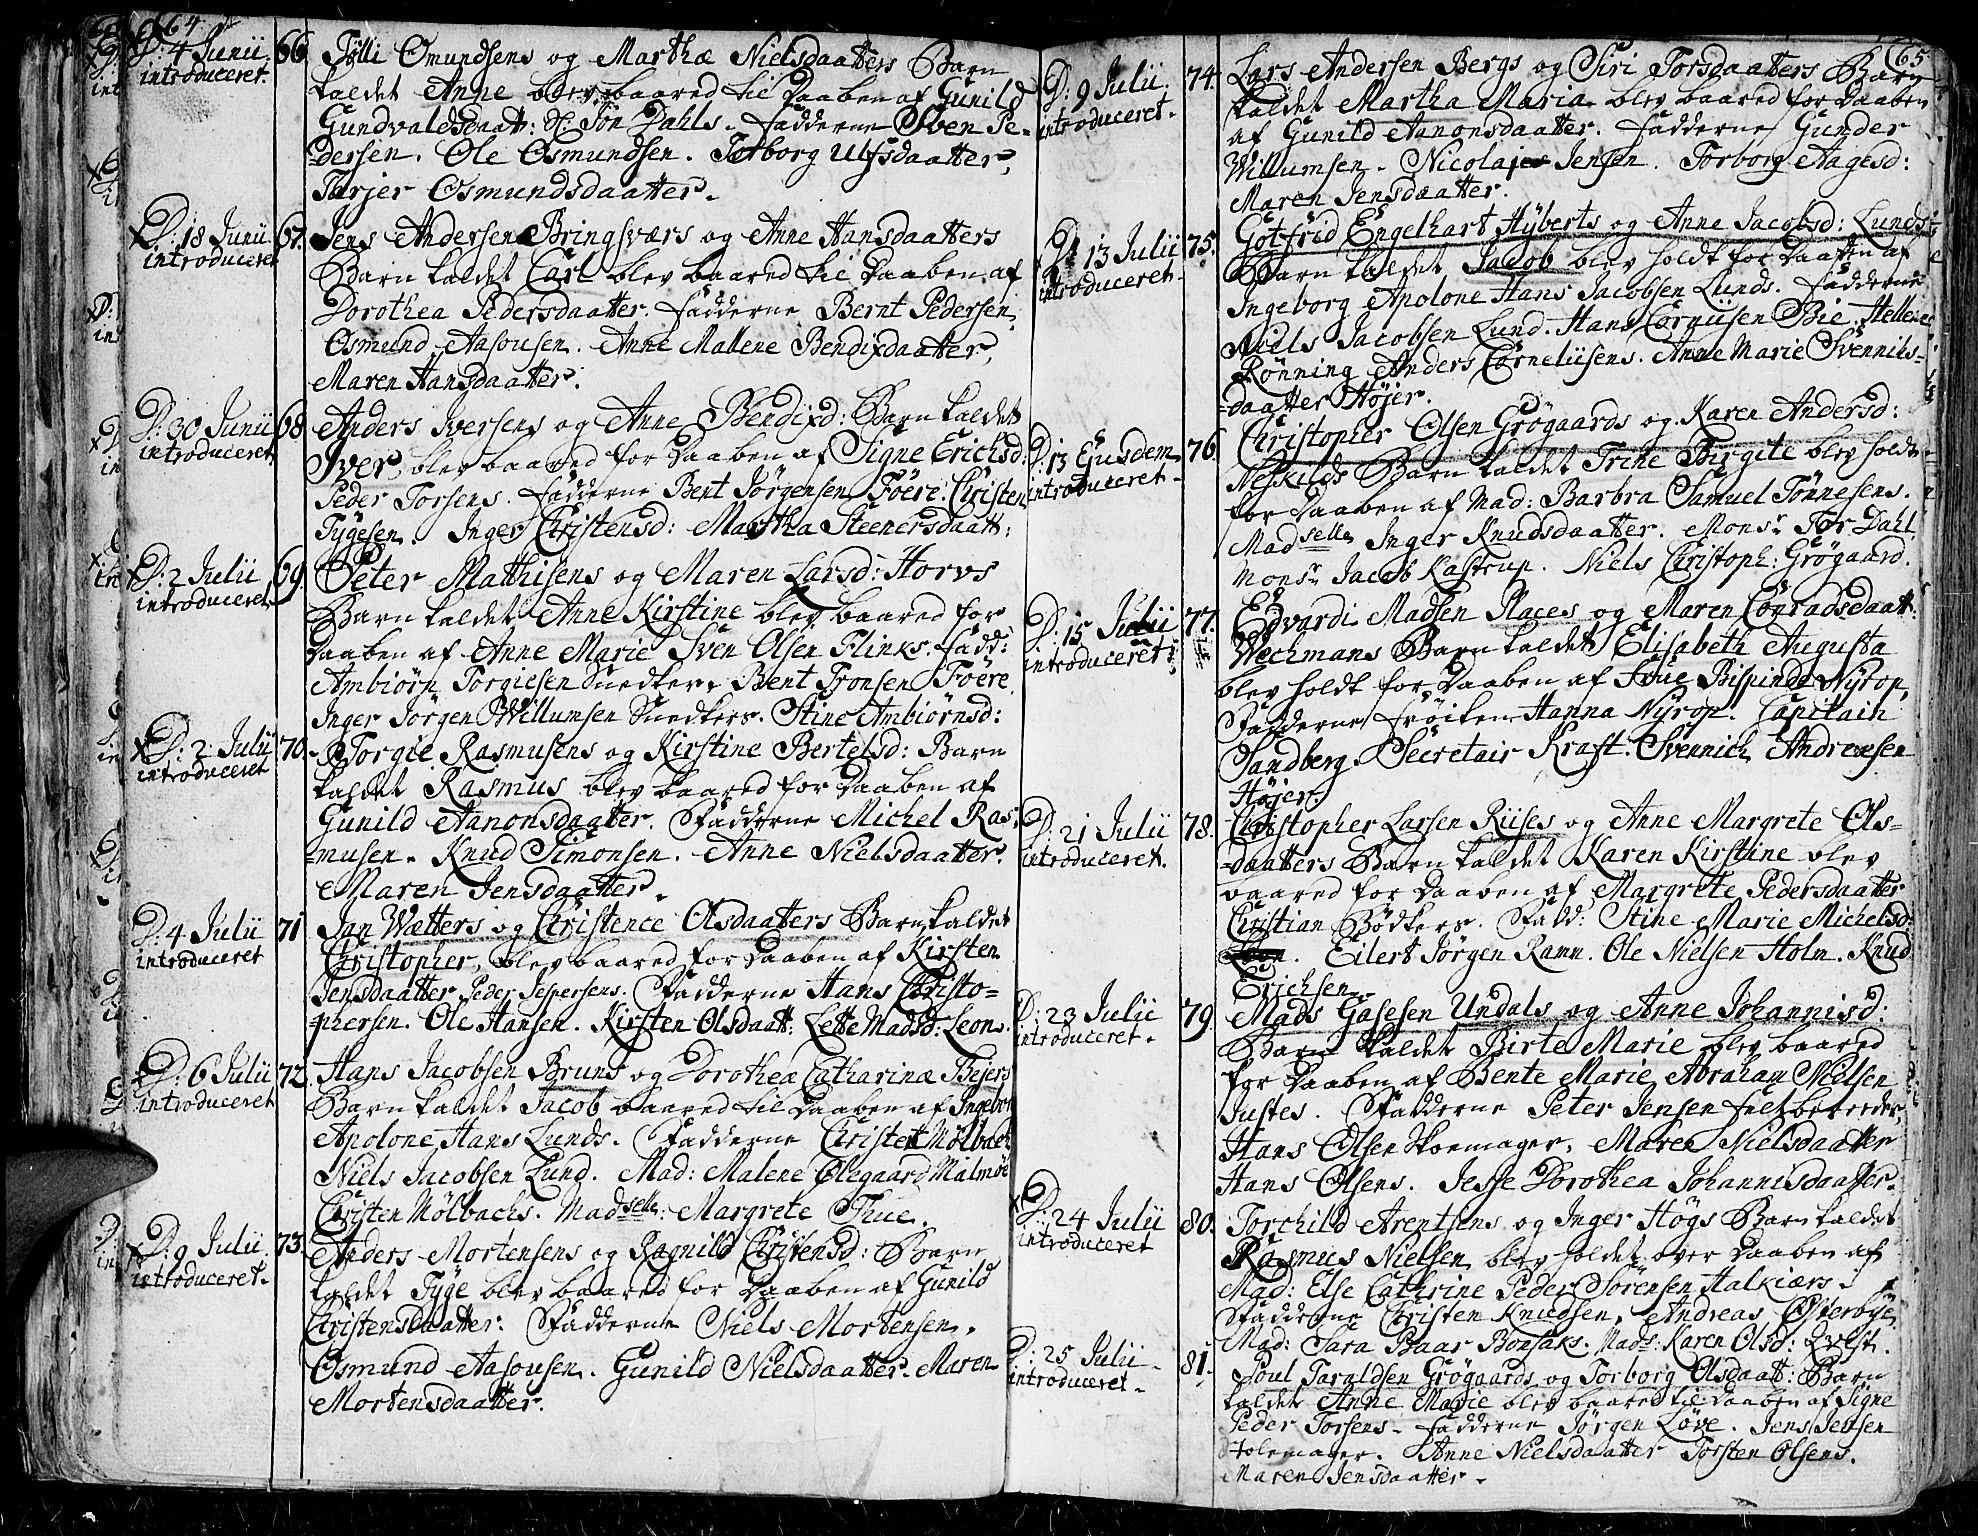 64
D: 4 Junii 66
introduceret.
Tølli Osmundsens og Marthæ Nielsdaatters Barn
kaldet Anne blev baared til Daaben af Gunild
Gundvaldsdaat: Jon Dahls. Fadderne Sven Pe-
dersen. Ole Osmundsen. Torborg Ulfsdaatter,
Tarjer Osmundsdaatter.
D: 18 Junii 67.
introduceret
Jens Andersen Bringsværs og Anne Hansdaatters
Barn kaldet Carl blev baared til Daaben af
Dorothea Pedersdaatter. Fadderne Bernt Pedersen,
Osmund Aasousen. Anne Malene Bendixdaatter,
Maren Hansdaatter.
D: 30 Junii 68
introduceret
Anders Iversens og Anne Bendixd: Barn kaldet
Iver, blev baared for Daaben af Signe Erichsd:
Peder Torsens. Fadderne Bent Jørgensen Føere. Christen
Tygesen. Inger Christensd: Martha Steenersdaatt:
D: 2 Julii 69.
introduceret
Peter Mathisens og Maren Larsd: Horvs
Barn kaldet Anne Kirstine blev baared for
Daaben af Anne Marie Sven Olsen Flinks. Fadd:
Ambiørn Torgiesen Snedker. Bent Tronsen Føere
Inger Jørgen Willumsen Snedkers. Stine Ambiørnsd:
D: 2 Julii 70.
introduceret
Torgie Rasmusens og Kirstine Bertelsd: Barn
kaldet Rasmus blev baared for Daaben af
Gunild Aanonsdaatter. Fadderne Michel Ras-
musen. Knud Simonsen. Anne Nielsdaatter.
Maren Jensdaatter.
D: 4 Julii 71
introduceret
Jan Watters og Christence Olsdaatters Barn kaldet
Christopher, blev baared for Daaben af Kirsten
Jensdaatter Peder Jespersens. Fadderne Hans Christo-
phersen. Ole Hansen. Kirsten Olsdaatt: Lette Madsd: Leon.
D: 6 Julii 72.
introduceret
Hans Jacobsen Bruns og Dorothea Catharina Bejers
Barn kaldet Jacob baared til Daaben af Ingebor
Apolone Hans Lunds. Fadderne Christen Mølbach
Niels Jacobsen Lund. Mad: Malene Olegaard Malmøe
Christen Mølbachs. Madselle: Margrete Thue.
D: 9 Julii 73.
introduceret.
Anders Mortensens og Ragnild Christensd: Barn
kaldet Tyge blev baared for Daaben af Gunild
Christensdaatter. Fadderne Niels Mortensen.
Osmund Aasousen. Gunild Nielsdaatter. Maren
Mortensdaatter.
65
D: 9 Julii. 74.
introduceret.
Lars Andersen Bergs og Siri Torsdaatters Barn
kaldet Martha Maria blev baared for Daaben
af Gunild Aanonsdaatter. Fadderne Gunder
Willumsen. Nicolai Jensen. Torborg Aagesd:
Maren Jensdaatter.
D: 13 Julii 75.
introduceret.
Gotfrid Engelhart Hyberts og Anne Jacobsd: Lunds
Barn kaldet Jacob blev holdt for Daaben af
Ingeborg Apolone Hans Jacobsen Lunds. Fadderne
Niels Jacobsen Lund. Hans Corniisen Bie. Hellene
Rønning Anders Corneliisens. Anne Marie Svenniks-
daatter Højer.
D: 13 Ejusdem 76.
introduceret.
Christopher Olsen Grøgaards og Karen Andersd:
Neskilds Barn kaldet Trine Birgite blev holdt
for Daaben af Mad: Barbra Samuel Tønnesens.
Madselle Inger Knudsdaatter. Monsr Tor Dahl,
Monsr Jacob Kastrup. Niels Christoph: Grøgaard.
D: 15 Julii 77.
introduceret:
Edvardi Madsen Places og Maren Conradsdaatt:
Wechmans Barn kaldet Elisabeth Augusta
blev holdt for Daaben af Frue Bispinde Nyrop,
Fadderne Frøiken Hanna Nyrop. Capitain
Sandberg. Secretair Kraft. Svennich Andreasen
Højer.
D: 21 Julii 78.
introduceret.
Christopher Larsen Riises og Anne Margrete Ols-
daatters Barn kaldet Karen Kirstine blev
baared for Daaben af Margrete Pedersdaatter
Christian Bødkers. Fadd: Stine Marie Michelsd:
Eilert Jørgen Ramn. Ole Nielsen Holm. Knud
Erichsen.
D: 23 Julii 79
introduceret.
Mads Gasesen Undals og Anne Johannisd:
Barn kaldet Birte Marie blev baared
for Daaben af Bente Marie Abraham Nielsen
Justes. Fadderne Peter Jensen Feltbereeder,
Hans Olsen Skoemager. Maren Nielsdaatter
Hans Olsens. Jesse Dorothea Johannisdaatter.
D: 24 Julii 80.
introduceret
Torchild Arentsens og Inger Høgs Barn kaldet
Rasmus Nielsen blev holdet over Daaben af
Mad: Else Cathrine Peder Sørensen Halkiærs.
Fadderne Christen Knudsen. Andreas Østerbye
Mad: Sara Baar Bonsaks. Mads: Karen Olsd: Qvist.
D: 25 Julii. 81.
introduceret.
Poul Taraldsen Grøgaards og Torborg Olsdaatt: Barn
kaldet Anne Marie blev baared til Daaben af Signe
Peder Torsens. Fadderne Jørgen Løve. Jens Jensen
Stolemager. Anne Nielsdaatter Torsten Olsens.
Maren Jensdaatter.